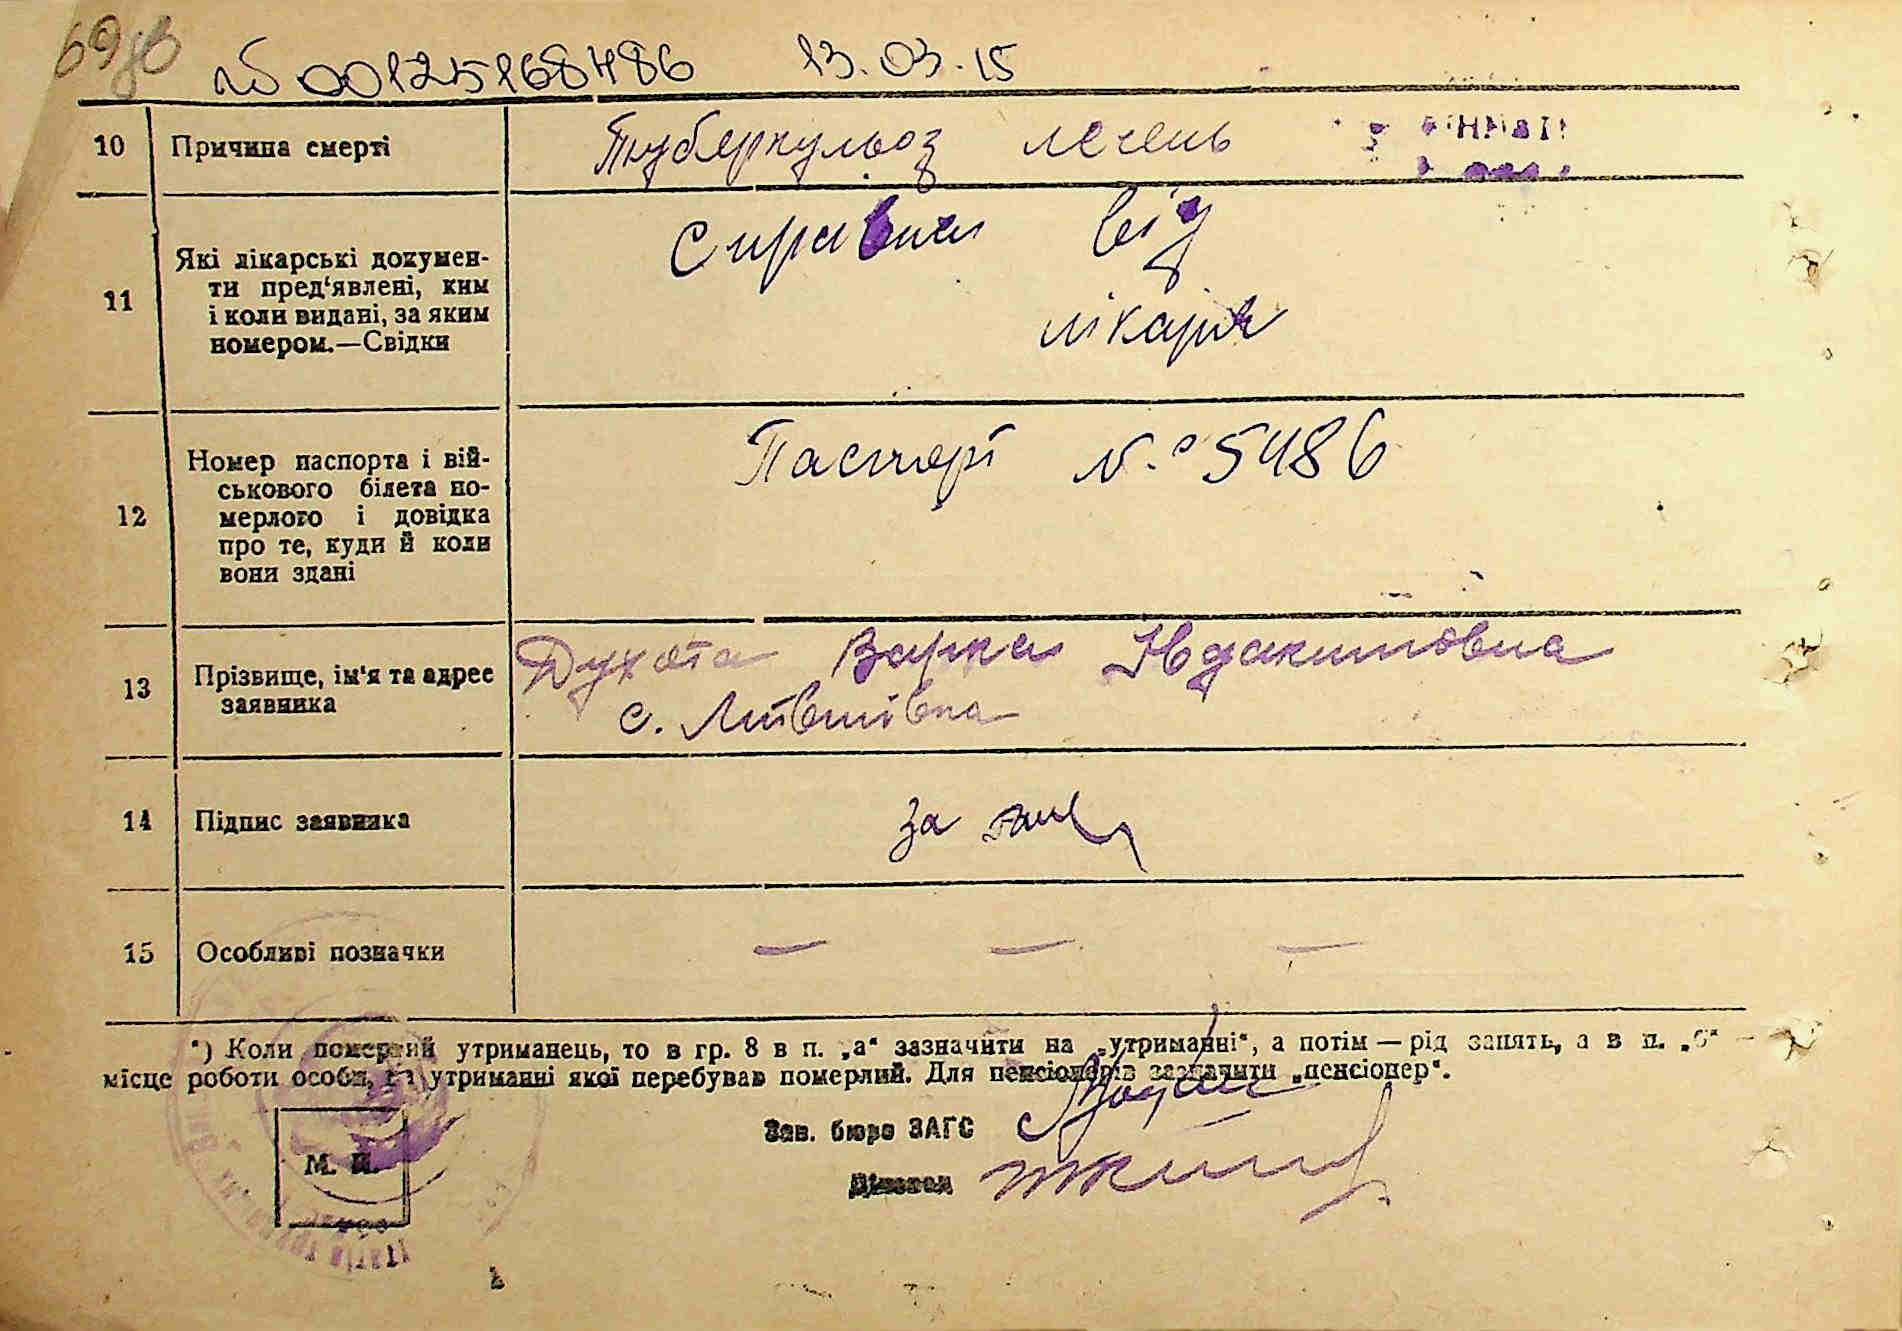 69зв
№ 00125168486 13.03.15
10 Причина смерті Туберкульоз легень
11 Які лікарські докумен-
ти пред'явлені, ким
і коли видані, за яким
номером.—Свідки
Справка від
лікаря
12 Номер паспорта і вій-
ськового білета по-
мерлого і довідка
про те, куди й коли
вони здані
Паспорт № 5486
13 Прізвище, ім'я та адрес
заявника
Варка
с.
14 Підпис заявника за
15 Особливі позначки — — —
*) Коли померлий утриманець, то в гр. 8 в п. „а" зазначити на „утриманні", а потім — рід занять, а в п. „б" –
місце роботи особи, на утриманні якої перебував померлий. Для пенсіонерів зазначити „пенсіонер".
Зав. бюро ЗАГС
М. П.
Діловод